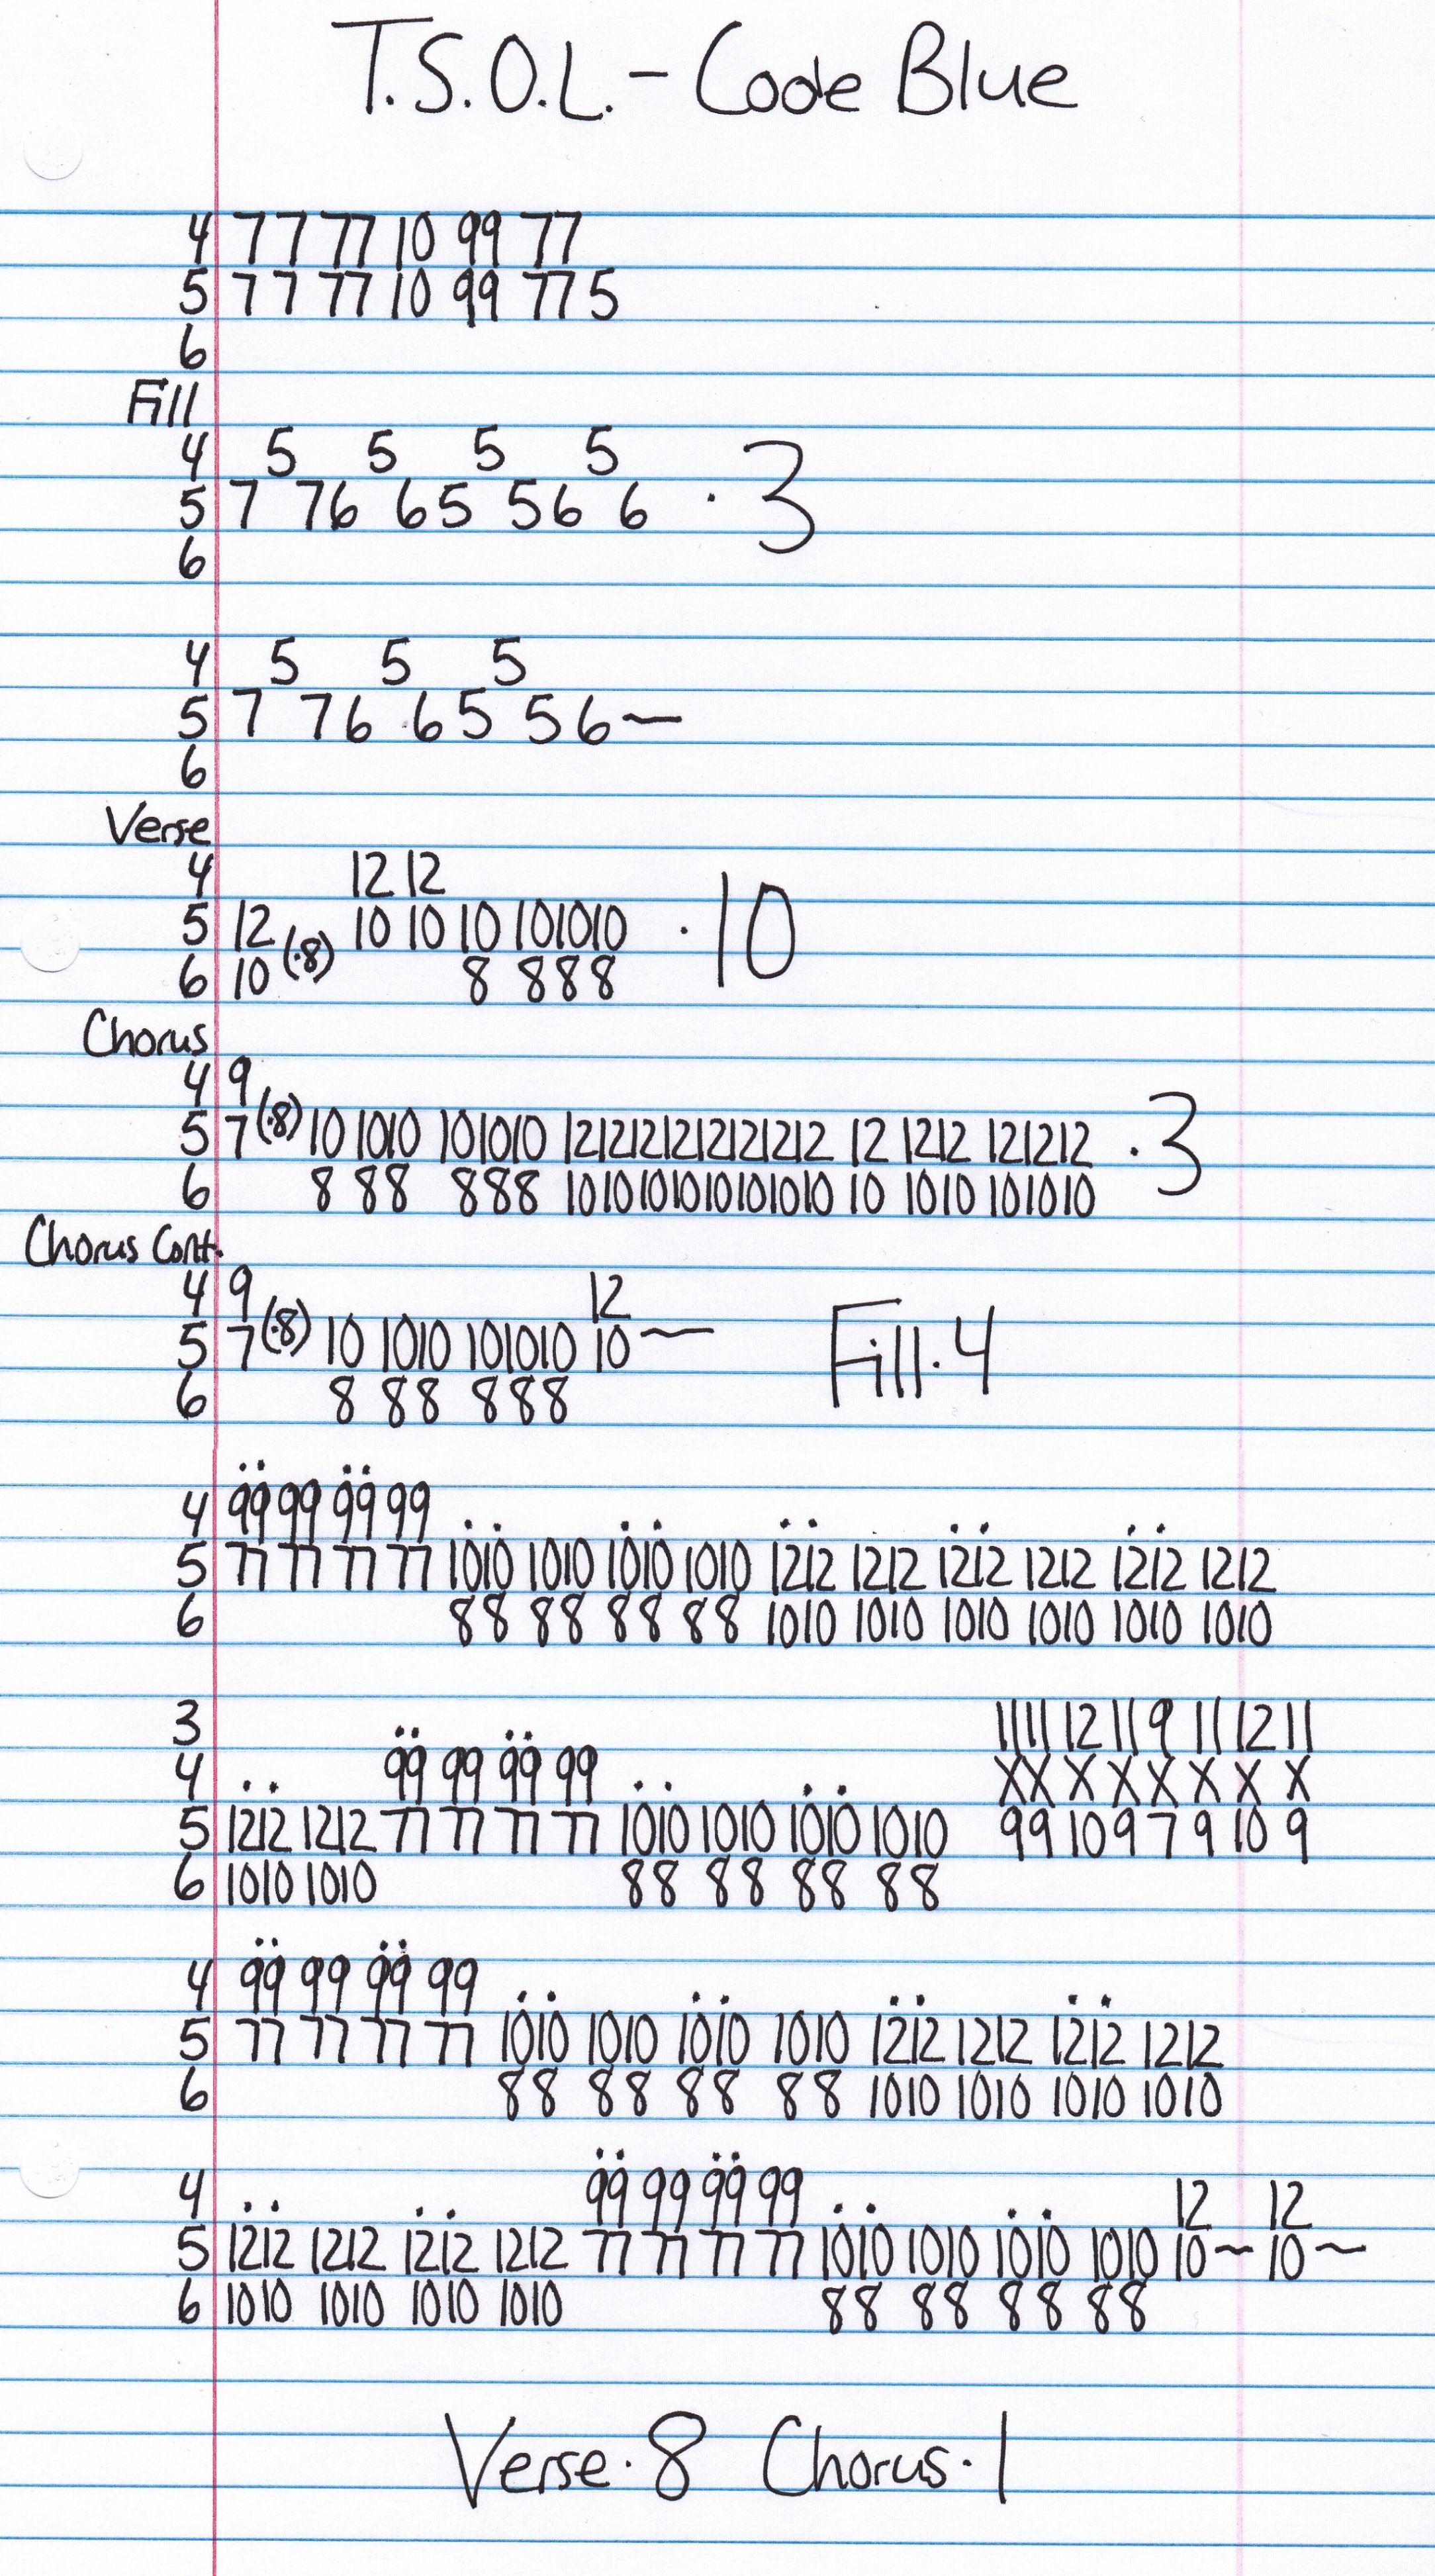 T.S.O.L. - Code Blue
4 7 7 77 10 99 77
5 7 7 77 10 99 77 5
6
Fill
4 5 5 5 5
5 7 76 65 56 6 · 3
6
4 5 5 5
5 7 76 65 56~
6
Verse
4 12 12
5 12 (·8) 10 10 10 101010 · 10
6 10 8 888
Chorus
4 9
5 7 (·8) 10 1010 101010 1212121212121212 12 1212 121212 · 3
6 8 88 888 1010101010101010 10 1010 101010
Chorus Cont.
4 9 12
5 7 (·8) 10 1010 101010 10~ Fill · 4
6 8 88 888
4 99 99 99 99
5 77 77 77 77 1010 1010 1010 1010 1212 1212 1212 1212 1212 1212
6 88 88 88 88 1010 1010 1010 1010 1010 1010
3 1111 12 11 9 11 12 11
4 99 99 99 99 XX X X X X X X
5 1212 1212 77 77 77 77 1010 1010 1010 1010 99 10 9 7 9 10 9
6 1010 1010 88 88 88 88
4 99 99 99 99
5 77 77 77 77 1010 1010 1010 1010 1212 1212 1212 1212
6 88 88 88 88 1010 1010 1010 1010
4 99 99 99 99 12 12
5 1212 1212 1212 1212 77 77 77 77 1010 1010 1010 1010 10~ 10~
6 1010 1010 1010 1010 88 88 88 88
Verse · 8 Chorus · 1